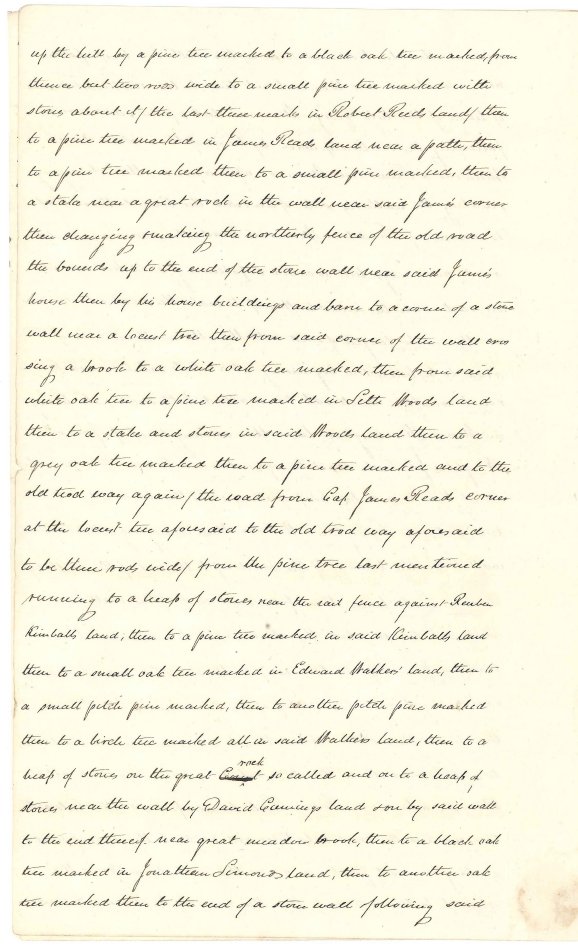 up the hill by a pine tree marked to a black oak tree marked, from
thence but two rods wide to a small pine tree marked with
stones about it/ the last three marks in Robert Reeds land/ then
to a pine tree marked in James Reads land near a path, then
to a pine tree marked then to a small pine marked, then to
a stake near a great rock in the wall near said James corner
then changing & making the northerly fence of the old road
the bounds up to the end of the stone wall near said James
house then by his house buildings and barn to a corner of a stone
wall near a locust tree then from said corner of the wall cros
sing a brook to a white oak tree marked, then from said
white oak tree to a pine tree marked in Seth Woods land
then to a stake and stones in said Woods land then to a
grey oak tree marked then to a pine tree marked and to the
old trod way again/ the road from Cap. James Reads corner
at the locust tree aforesaid to the old trod way aforesaid
to be three rods wide/ from the pine tree last mentioned
running to a heap of stones near the rail fence against Reuben
Kimballs land, then to a pine tree marked in said Kimballs land
then to a small oak tree marked in Edward Walkers' land, then to
a small pitch pine marked, then to another pitch pine marked
then to a birch tree marked all in said Walkers land, then to a
heap of stones on the great rock so called and on to a heap of
stones near the wall by David Cumings land & on by said wall
to the end thereof near great meadow brook, then to a black oak
tree marked in Jonathan Simonds land, then to another oak
tree marked then to the end of a stone wall following said